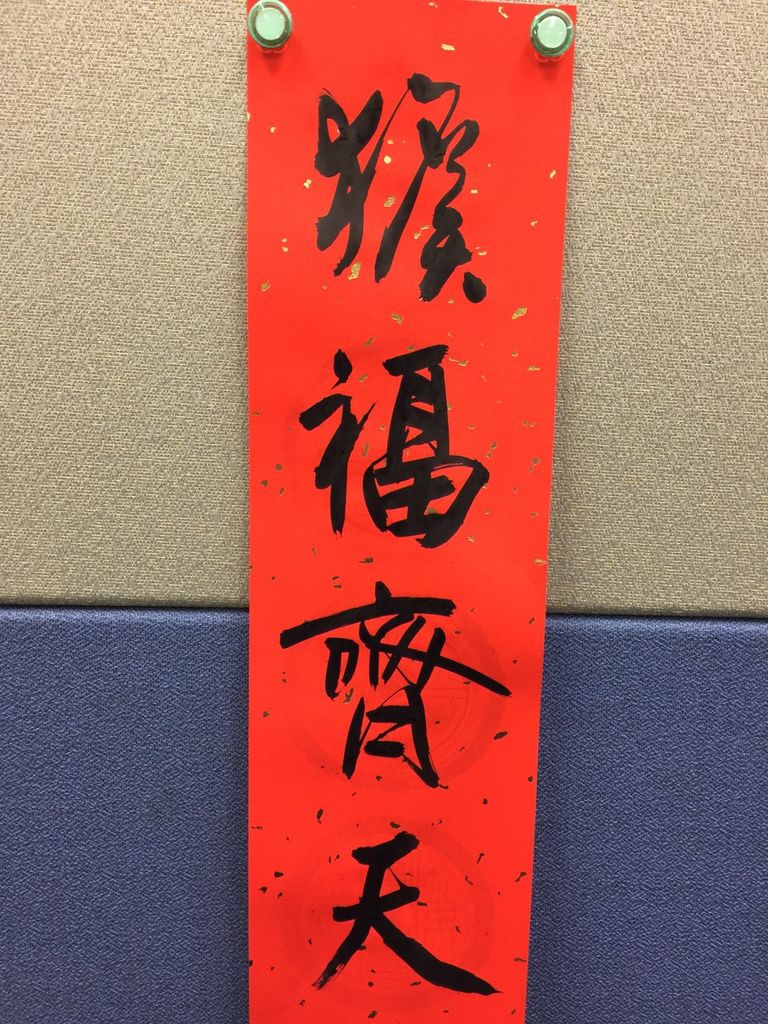 猴福齊天